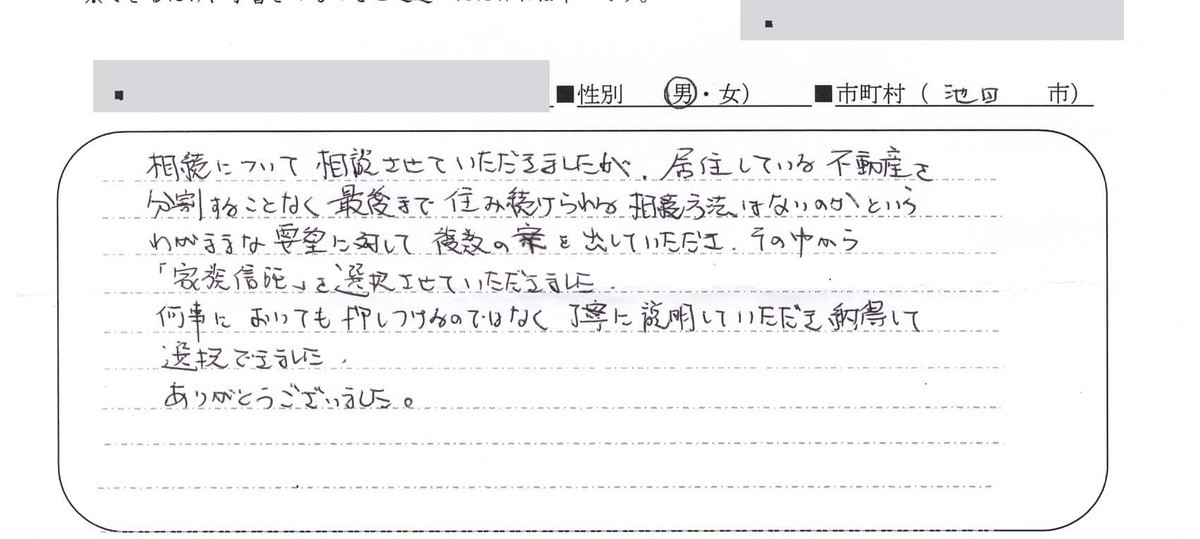 ■性別 (男・女) ■市町村(池田 市)
相続について相談させていただきましたが、居住している不動産を
分割することなく最後まで住み続けられる相続方法はないのかという
わがままな要望に対して複数の案を出していただき、その中から
「家族信託」を選択させていただきました。
何事においても押しつけるのではなく丁寧に説明していただき納得して
選択できました。
ありがとうございました。